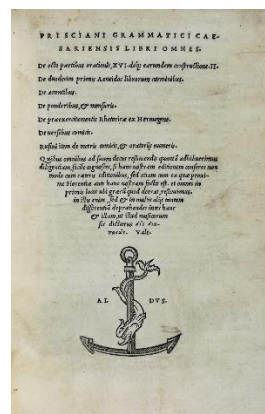 PRISCIANI GRAMMATICI CAE-
SARIENSIS LIBRI OMNES.
De octo partibus orationis, XVI. deq; earundem constructione. II.
De duodecim primis Aeneidos librorum carminibus.
De accentibus.
De ponderibus, & mensuris.
De praeexercitamentis Rhetoricæ ex Hermogene.
De uersibus comicis.
Rufini item de metris comicis, & oratorijs numeris.
Quibus omnibus ad suum decus restituendis quantā adhibuerimus
diligentiam facile cognoscet, si hanc nostram editionem conferet non
modo cum cæteris editionibus, sed etiam cum ea quæ proxi-
me Florentiæ ante hanc nostram facta est. et omnia in
primis loca ubi græca quæ deerāt, restituimus.
in illa enim, sed & in multis alijs tantam
differentiā deprehendet inter hanc
& illam, ut illud rusticorum
sic dictarūs dis dia
Vale.
AL DVS.